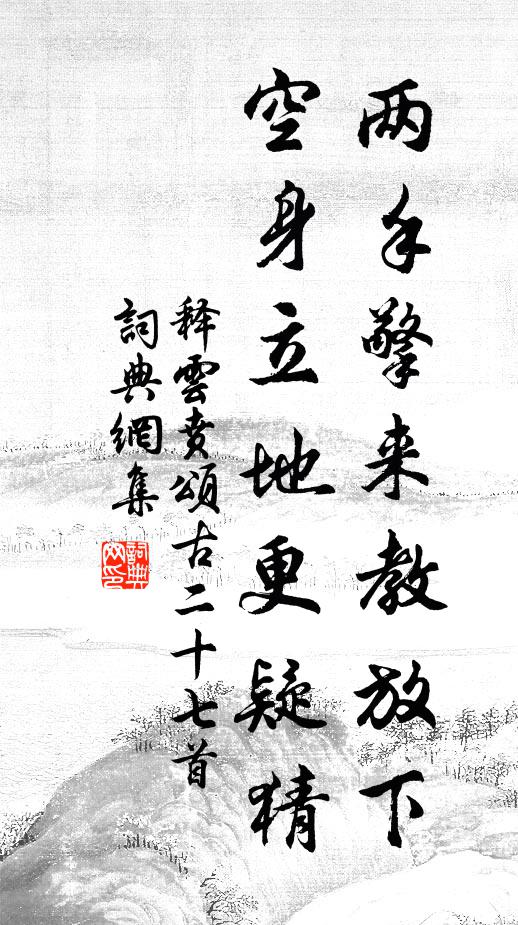 两手擎来教放下
空身立地更疑猜
释雲贲頌古二十七首
詞典網集
詞典
网印